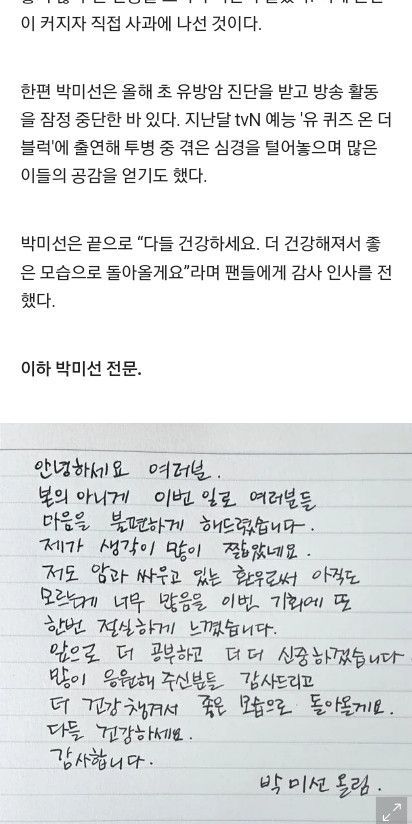 이 커지자 직접 사과에 나선 것이다.
한편 박미선은 올해 초 유방암 진단을 받고 방송 활동
을 잠정 중단한 바 있다. 지난달 tvN 예능 '유 퀴즈 온 더
블럭'에 출연해 투병 중 겪은 심경을 털어놓으며 많은
이들의 공감을 얻기도 했다.
박미선은 끝으로 “다들 건강하세요. 더 건강해져서 좋
은 모습으로 돌아올게요”라며 팬들에게 감사 인사를 전
했다.
이하 박미선 전문.
안녕하세요 여러분.
본의 아니게 이번 일로 여러분들
마음을 불편하게 해드렸습니다.
제가 생각이 많이 짧았네요.
저도 암과 싸우고 있는 환우로써 아직도
모르는게 너무 많음을 이번 기회에 또
한번 절실하게 느꼈습니다.
앞으로 더 공부하고 더 더 신중하겠습니다
많이 응원해 주신분들 감사드리고
더 건강 챙겨서 좋은 모습으로 돌아올게요.
다들 건강하세요.
감사합니다.
박미선 올림.